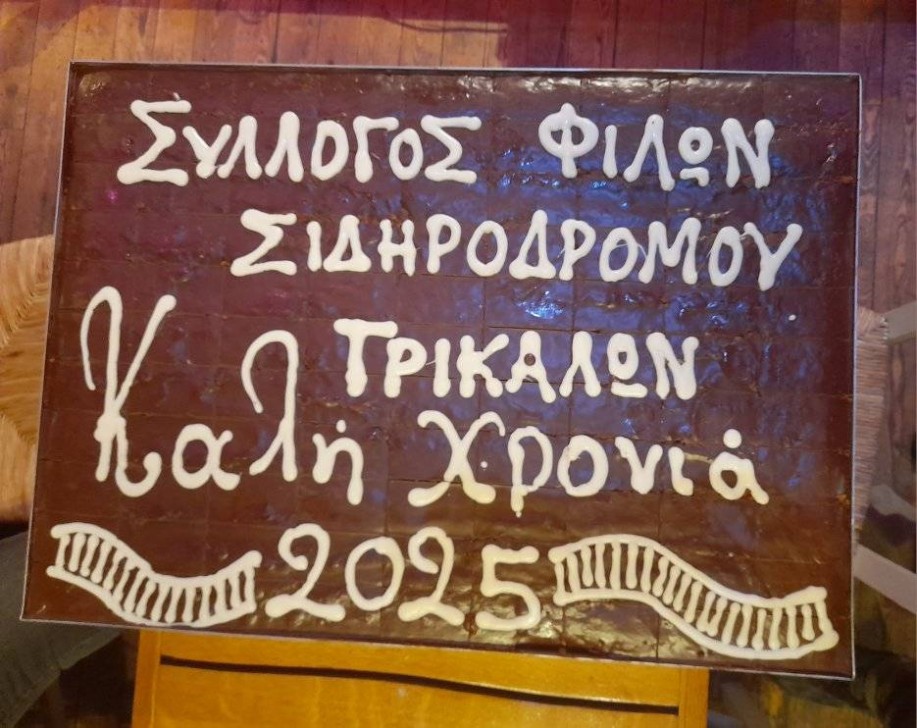 ΣΥΛΛΟΓΟΣ ΦΙΛΩΝ
ΣΙΔΗΡΟΔΡΟΜΟΥ
ΤΡΙΚΑΛΩΝ
Καλή Χρονιά
2025